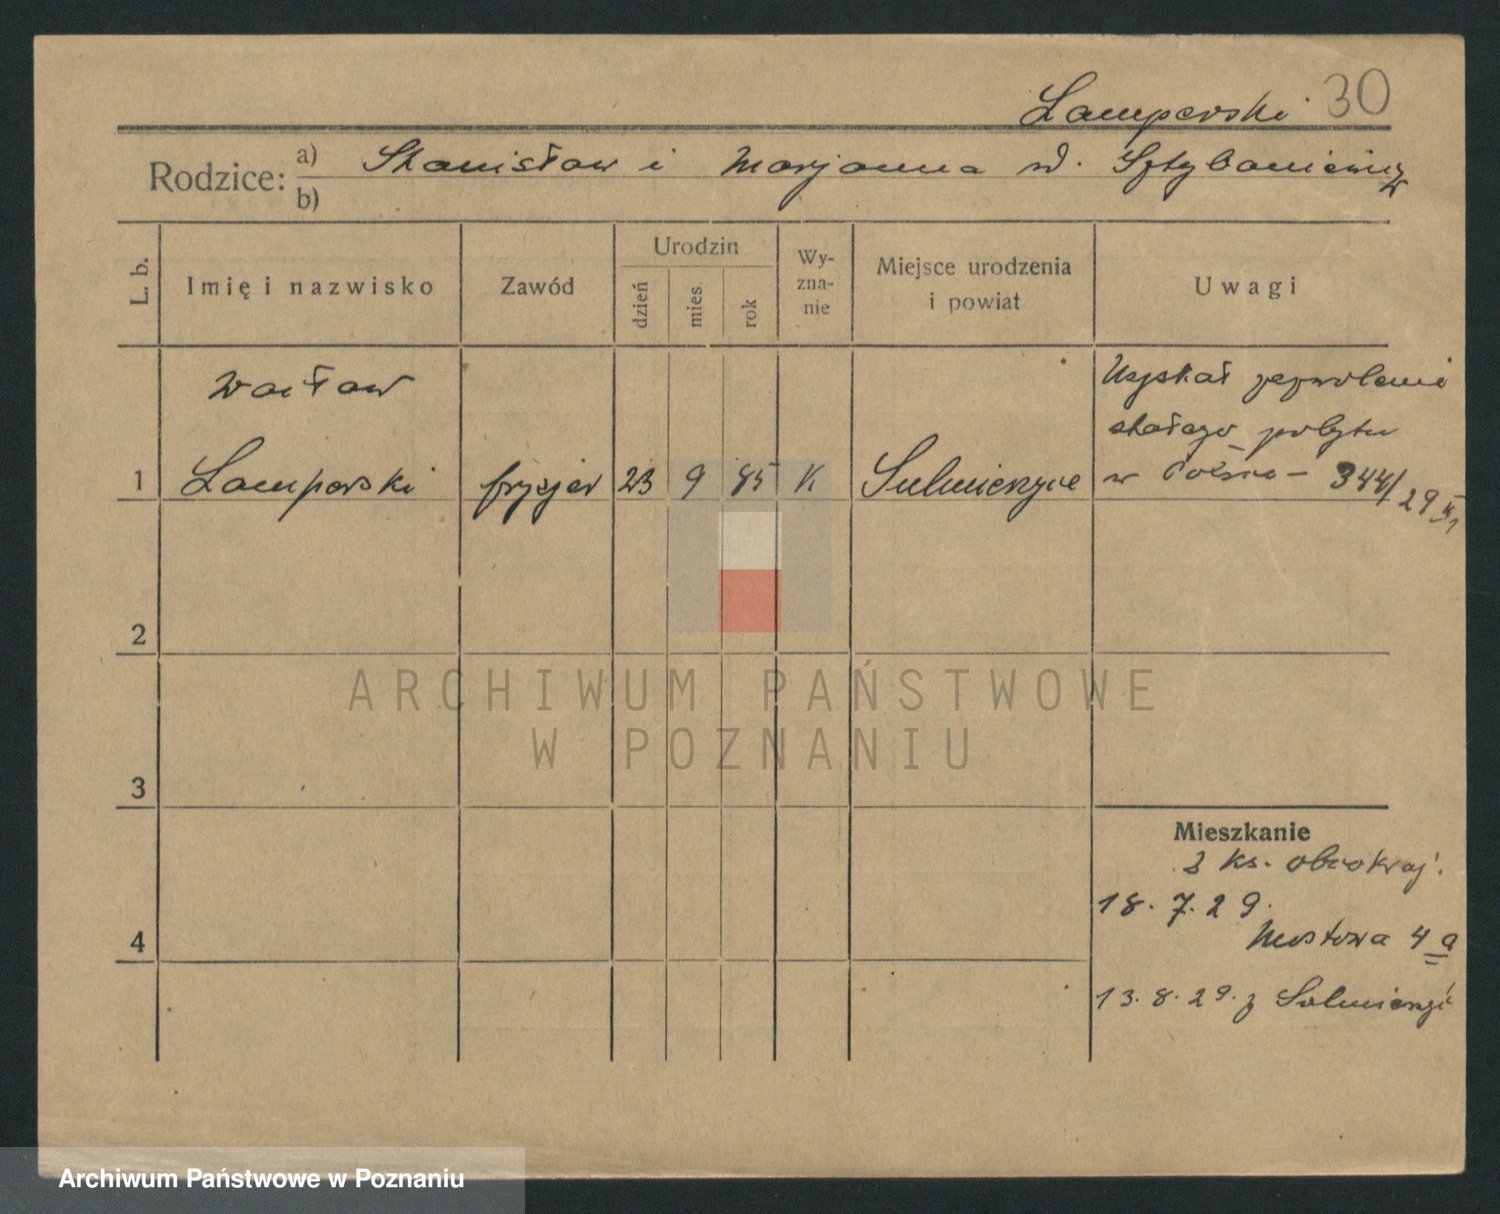 Lamperski 30
Rodzice: a) Stanisław i Marjanna
b)
L. b.
Imię i nazwisko
Zawód
Urodzin
dzień
mies.
rok
Wy-
zna-
nie
Miejsce urodzenia
i powiat
Uwagi
Wacław
Uzyskał zezwolenie
stałego pobytu
1 Lamperski fryzjer 23 9 85 K Sulmierzyce w Polsce - 344/29
2
ARCHIWUM PAŃSTWOWE
W POZNANIU
3
Mieszkanie
z ks. obcokraj.
18.7.29.
Mostowa 4a
4
13.8.29. z Sulmierzyc
Archiwum Państwowe w Poznaniu